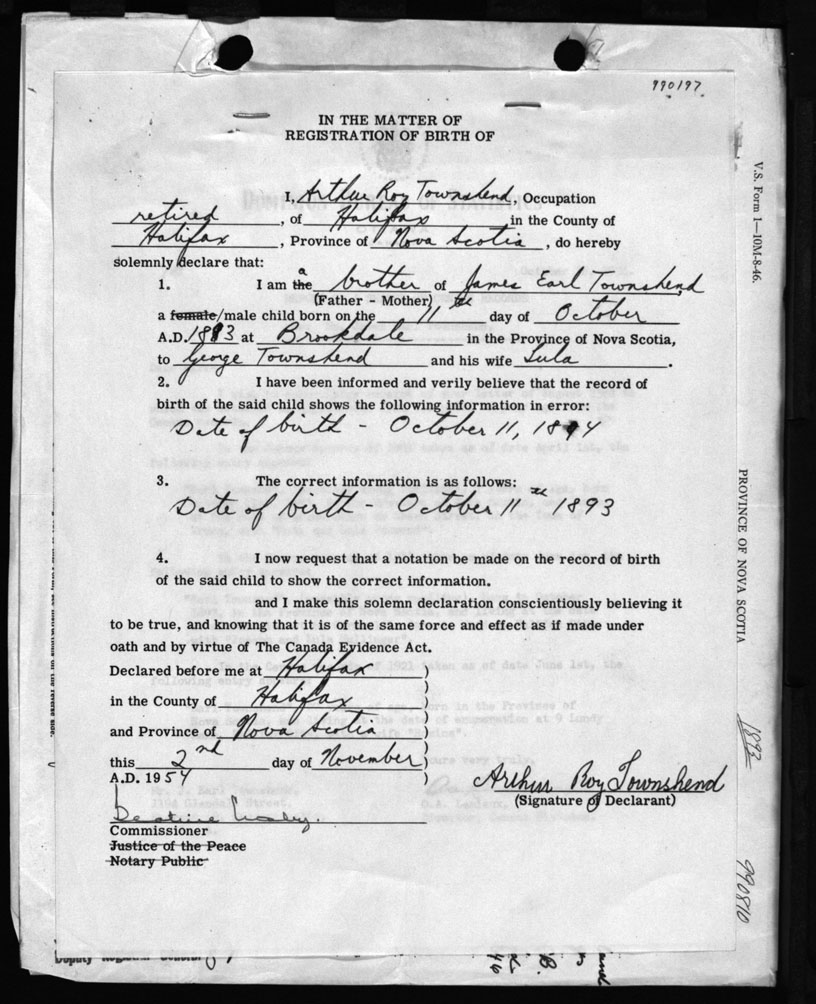 990197
IN THE MATTER OF
REGISTRATION OF BIRTH OF
I, Arthur Roy Townshend, Occupation
retired, of Halifax in the County of
Halifax, Province of Nova Scotia, do hereby
solemnly declare that:
1. I am the a brother of James Earl Townshend
(Father - Mother)
a female/male child born on the 11th day of October
A.D. 1893 at Brookdale in the Province of Nova Scotia,
to George Townshend and his wife Lula.
2. I have been informed and verily believe that the record of
birth of the said child shows the following information in error:
Date of birth - October 11, 1894
3. The correct information is as follows:
Date of birth - October 11th 1893
4. I now request that a notation be made on the record of birth
of the said child to show the correct information.
and I make this solemn declaration conscientiously believing it
to be true, and knowing that it is of the same force and effect as if made under
oath and by virtue of The Canada Evidence Act.
Declared before me at Halifax )
in the County of Halifax )
and Province of Nova Scotia )
this 2nd day of November )
A.D. 1954 )
Arthur Roy Townshend
(Signature of Declarant)
Beatrice
Commissioner
Justice of the Peace
Notary Public
V.S. Form 1—10M-8-46.
PROVINCE OF NOVA SCOTIA
1893
990810
Deputy Registrar General